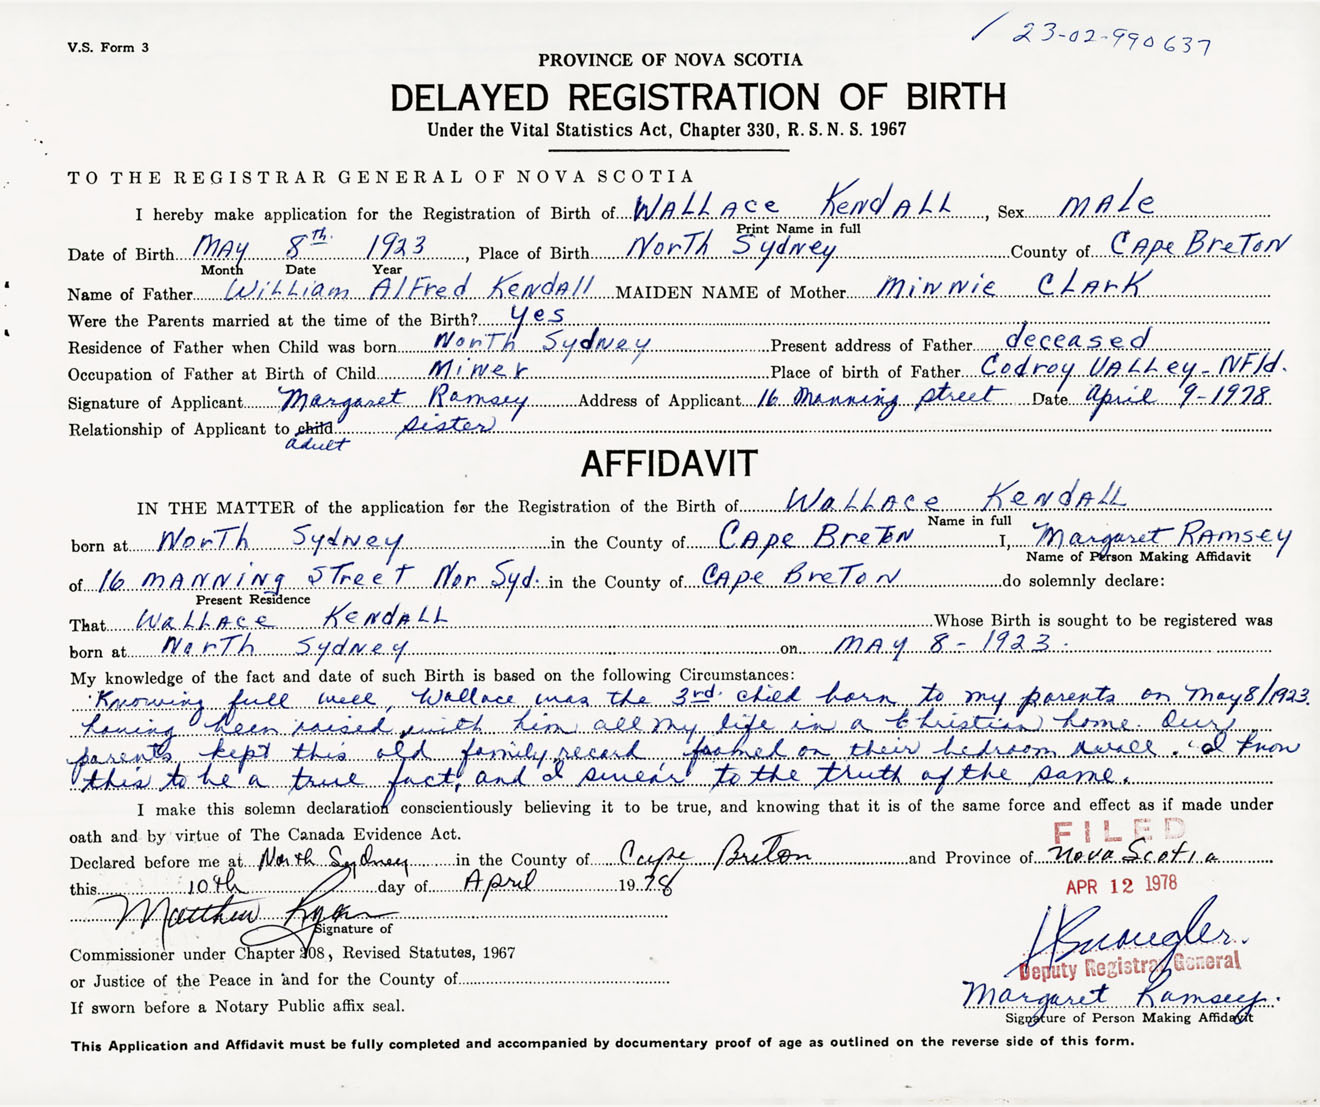 V.S. Form 3
/ 23-02-990637
PROVINCE OF NOVA SCOTIA
DELAYED REGISTRATION OF BIRTH
Under the Vital Statistics Act, Chapter 330, R. S. N. S. 1967
TO THE REGISTRAR GENERAL OF NOVA SCOTIA
I hereby make application for the Registration of Birth of WALLAce KendALL, Sex MALe
Print Name in full
Date of Birth MAY 8th. 1923, Place of Birth North Sydney County of CApe BreTon
Month Date Year
Name of Father William Alfred Kendall MAIDEN NAME of Mother Minnie CLArK
Were the Parents married at the time of the Birth? yes
Residence of Father when Child was born North Sydney Present address of Father deceased
Occupation of Father at Birth of Child Miner Place of birth of Father Codroy VALLey - NFld.
Signature of Applicant Margaret Ramsey Address of Applicant 16 Manning street Date April 9-1978
Relationship of Applicant to child sister
adult
AFFIDAVIT
IN THE MATTER of the application for the Registration of the Birth of WALLAce KendALL
Name in full
born at NorTh Sydney in the County of CApe BreTon I, Margaret RAmsey
Name of Person Making Affidavit
of 16 MANNING STreeT Nor Syd. in the County of CApe BreTon do solemnly declare:
Present Residence
That WALLAce KendALL Whose Birth is sought to be registered was
born at NorTh Sydney on MAY 8 - 1923.
My knowledge of the fact and date of such Birth is based on the following Circumstances:
Knowing full well, Wallace was the 3rd. child born to my parents on May 8/1923.
having been raised with him all my life in a Christian home. Our
parents kept this old family record framed on their bedroom wall. I know
this to be a true fact, and I swear to the truth of the same.
I make this solemn declaration conscientiously believing it to be true, and knowing that it is of the same force and effect as if made under
oath and by virtue of The Canada Evidence Act.
FILED
Declared before me at North Sydney in the County of Cape Breton and Province of Nova Scotia
this 10th day of April 1978
APR 12 1978
Matthew Ryan
Signature of
Commissioner under Chapter 308, Revised Statutes, 1967
or Justice of the Peace in and for the County of
Deputy Registrar General
Margaret Ramsey.
If sworn before a Notary Public affix seal.
Signature of Person Making Affidavit
This Application and Affidavit must be fully completed and accompanied by documentary proof of age as outlined on the reverse side of this form.